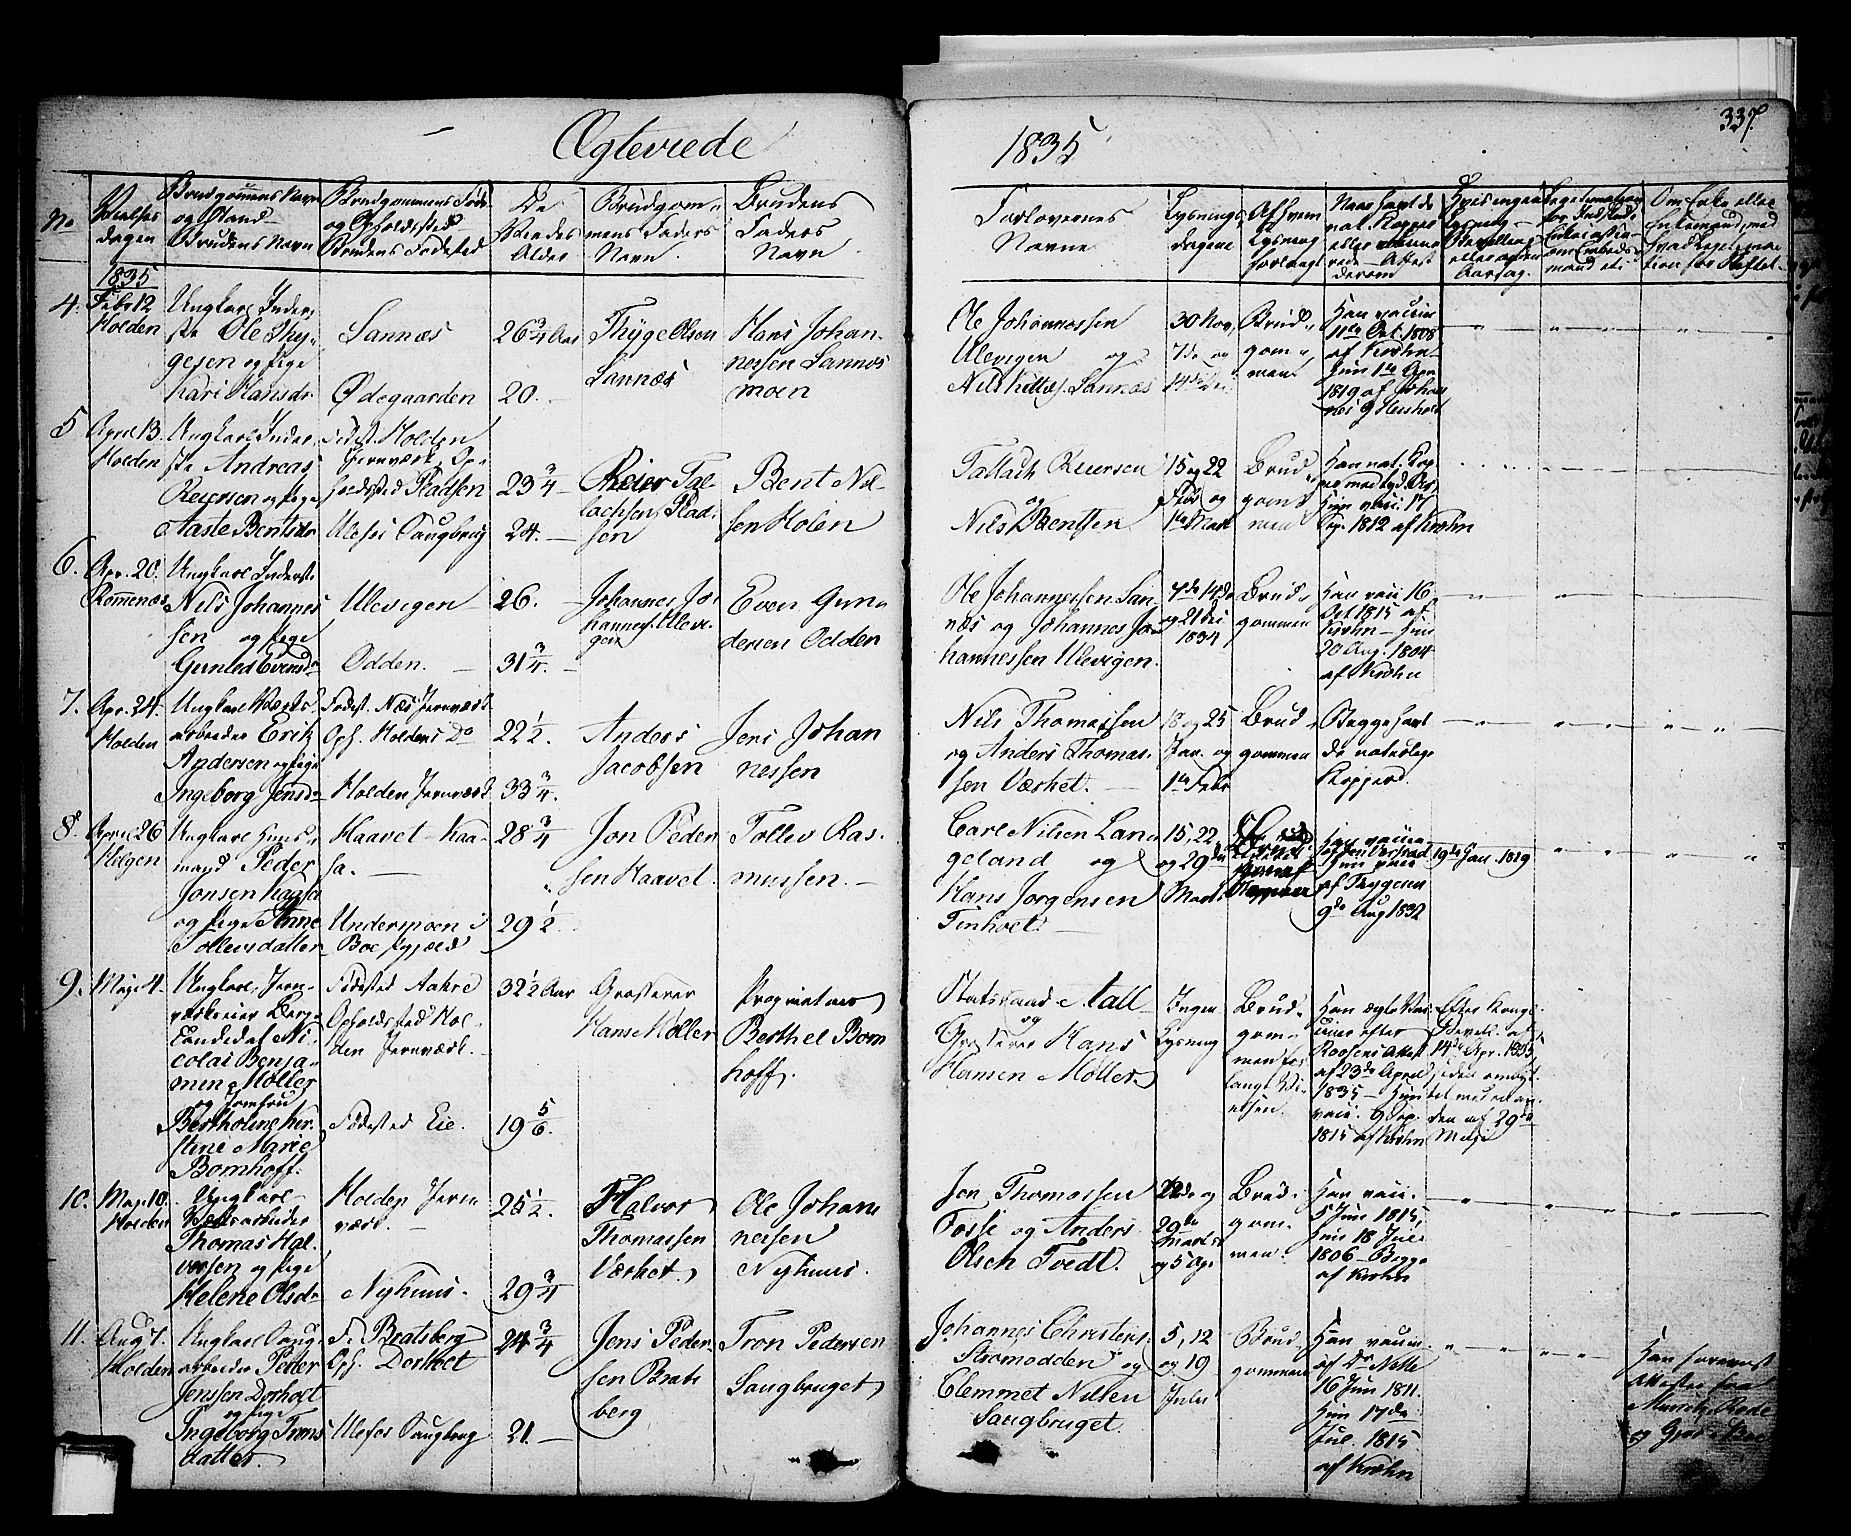 Ægteviede
1835
337.
No
Vielses
dagen
Brudgommens Navn
og Stand
Brudens Navn
Brudgommens Føde
og Opholdssted
Brudens Fødested
De
Viedes
Alder
Brudgom-
mens Faders
Navn
Brudens
Faders
Navn
Forlovernes
Navne
Lysnings
dagene
Af hvem
Lysning
forlangt
1835
4.
Febr 12
Holden
Ungkarl Inder-
ste Ole Thy-
gesen og Pige
Kari Hansdr
Sannæs
Ødegaarden
26 3/4 Aar
20.
Thyge Olsen
Sannæs
Hans Johan-
nessen Sannæs
moen
Ole Johannessen
Ulevigen og
Nils Kittels. Sannæs
30 Nov,
7de og
14de Dec
Brud-
gom-
men
Han vaccin
11te Oct. 1808
af Krohn
1819 af Johan
5
April 13.
Holden
Ungkarl Inder-
ste Andreas
Reiersen og Pige
Aaste Bentsdr
Fødest. Holden
Jernværk, Op-
holdssted Pladsen
Ulefos Saugbrug
23 3/4
24.
Reier Tal-
lachsen Plad-
sen
Bent Nil-
sen Holen
Tallach Reiersen
og
Nils Bentsen
15 og 22
Febr og
1te Mart
Brud
gom
men
Han nat. Kop-
Hun vacc. 17
Sep. 1812 af Krohn
6.
Apr. 20.
Romenæs
Ungkarl Inderst.
Nils Johannes
sen og Pige
Gunild Evensdr
Ulevigen
Odden.
26.
31 3/4
Johannes Jo-
hanness. Ulevi-
gen
Even Gun-
dersen Odden
Ole Johannessen San-
næs og Johannes Jo-
hannessen Ulevigen.
7de 14de
og 21 Dec
1834
Brud-
gommen
Han vacc 16
Oct 1815 af
Krohn - Hun
20 Aug. 1804
af Krohn
7.
Apr. 24.
Holden
Ungkarl Værks-
arbeider Erik
Andersen og Pige
Ingeborg Jensdr
Fødest. Næs Jernværk
Oph. Holdens Do
Holden Jernværk
22 1/2.
33 3/4.
Anders
Jacobsen
Jens Johan
nessen
Nils Thomassen
og Anders Thomas-
sen Værket.
18 og 25
Jan. og
1te Febr
Brud-
gommen
Begge havt
de naturlige
Kopper.
8.
April 26
Helgen
Ungkarl Huus-
mand Peder
Jonsen Kaasa
og Pige Anne
Tollevsdatter
Haavet - Kaa-
sa.
Undersmoen i
Boe Præstegjæld
28 3/4
29 1/2
Jon Peder
sen Haavet.
Tollev Ras-
mussen.
Carl Nilsen Lan-
geland og
Hans Jorgensen
Tinholt.
15, 22
og 29de
Marts
Han vaccin
19de Jan. 1819
Hun vacc
af Thygesen
9de Aug 1832
9.
Maji 4.
Ungkarl, Jern-
værkseier Berg-
Candidat Ni-
colai Benja-
men Møller
og Jomfru
Bertholine Kir-
stine Marie
Bomhoff.
Fødested Aahre
Opholdssted Hol-
den Jernværk.
Fødested Eie.
32 1/2 Aar
19 5/6.
Grosserer
Hans Møller
Proprietær
Berthel Bom
hoff.
Statsraad Aall
og
Grosserer Hans
Hansen Møller
Ingen
Lysning
Brud-
gom-
men for-
langt Vi-
elsen.
af 23de April
1835 - Hun
vacc. 9 Sep.
1815 af Krohn
Efter Kongl.
Bevill. af
14de Apr. 1835,
den af 29de
Maji
10.
Maj. 10.
Holden
Ungkarl
Værksarbeider
Thomas Hal-
vorsen og Pige
Helene Olsdr
Holden Jern
værk.
Nyhuus.
25 1/2.
29 3/4
Halvor
Thomassen
Værket.
Ole Johan
nessen
Nyhuus.
Jon Thomassen
Fosse og Anders
Olsen Tvedt.
22de og
29de
Marts
og 5 Apr
Brud-
gom-
men.
Han vacc.
5 Jun 1815,
Hun 18 Juli
1806 - Begge
af Krohn
11.
Aug 7.
Holden
Ungkarl Saug-
arbeider Peder
Jenssen Dorholt
og Pige
Ingeborg Trons
datter.
F. Bratsberg
Oph. Dorholt
Ulefos Saugbrug
24 3/4
21.
Jens Peder-
sen Brats
berg
Tron Pedersen
Saugbruget
Johannes Christens.
Strømodden og
Clemmet Nilsen
Saugbruget.
5, 12
og 19
Julii
Brud-
gommen
Han vaccin.
af Dr Nolte
16 Jun 1811.
Hun 17de
Jul. 1815
af Krohn
Han foreviist
Attester fra